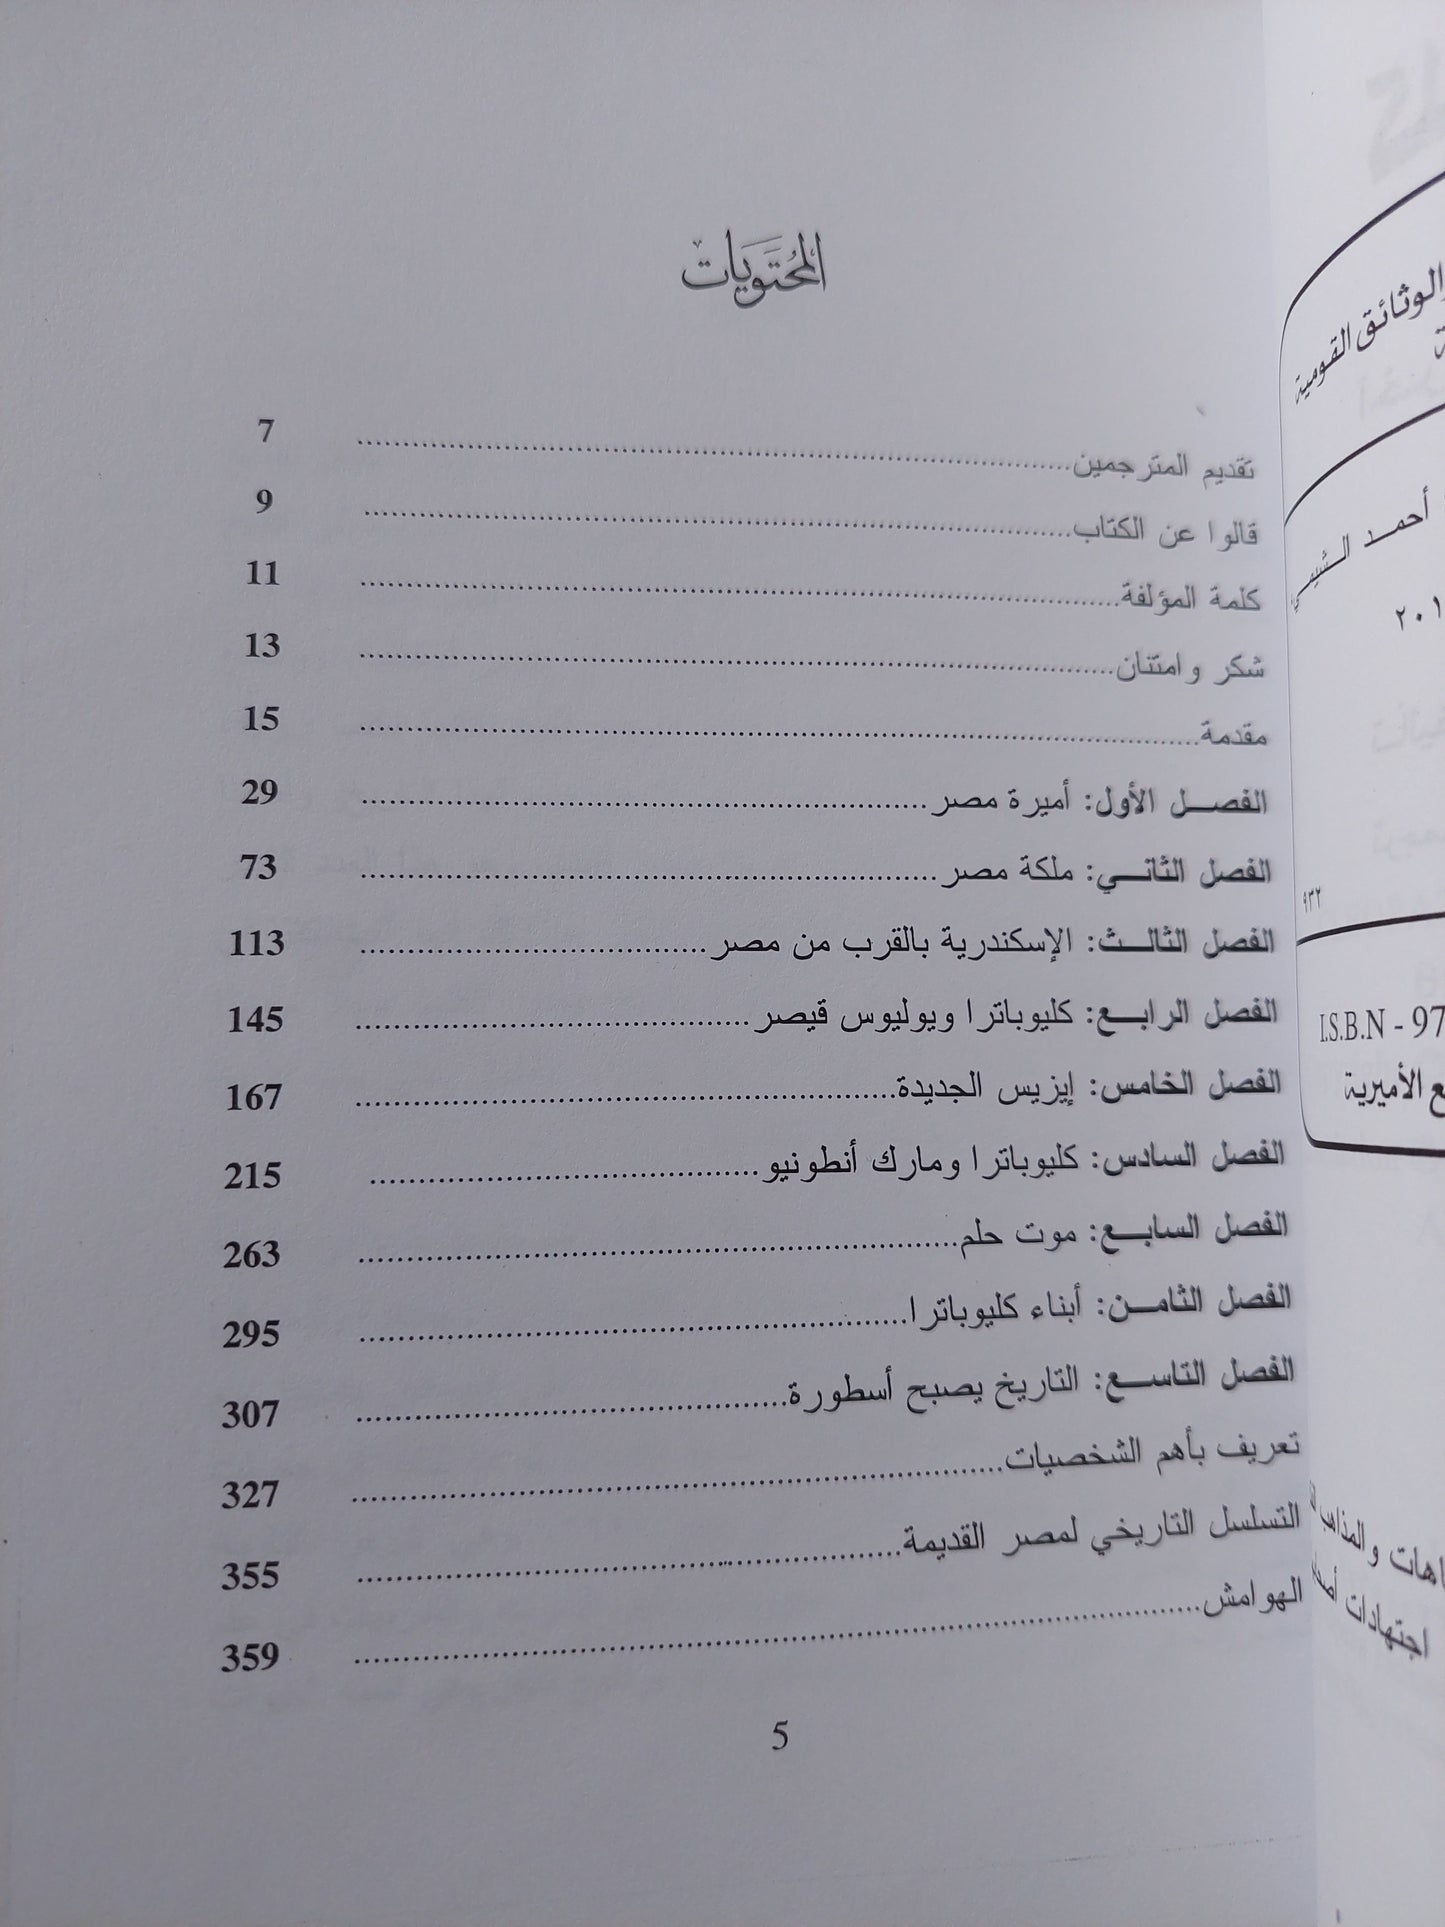 المحتويات
تقديم المترجمين 7
قالوا عن الكتاب 9
كلمة المؤلفة 11
شكر وامتنان 13
مقدمة 15
الفصل الأول: أميرة مصر 29
الفصل الثاني: ملكة مصر 73
الفصل الثالث: الإسكندرية بالقرب من مصر 113
الفصل الرابع: كليوباترا ويوليوس قيصر 145
الفصل الخامس: إيزيس الجديدة 167
الفصل السادس: كليوباترا ومارك أنطونيو 215
الفصل السابع: موت حلم 263
الفصل الثامن: أبناء كليوباترا 295
الفصل التاسع: التاريخ يصبح أسطورة 307
تعريف بأهم الشخصيات 327
التسلسل التاريخي لمصر القديمة 355
الهوامش 359
5
والوثائق القومية
أحمد
٩٣٢
I.S.B.N - 97
الأميرية
والمذاهب
اجتهادات